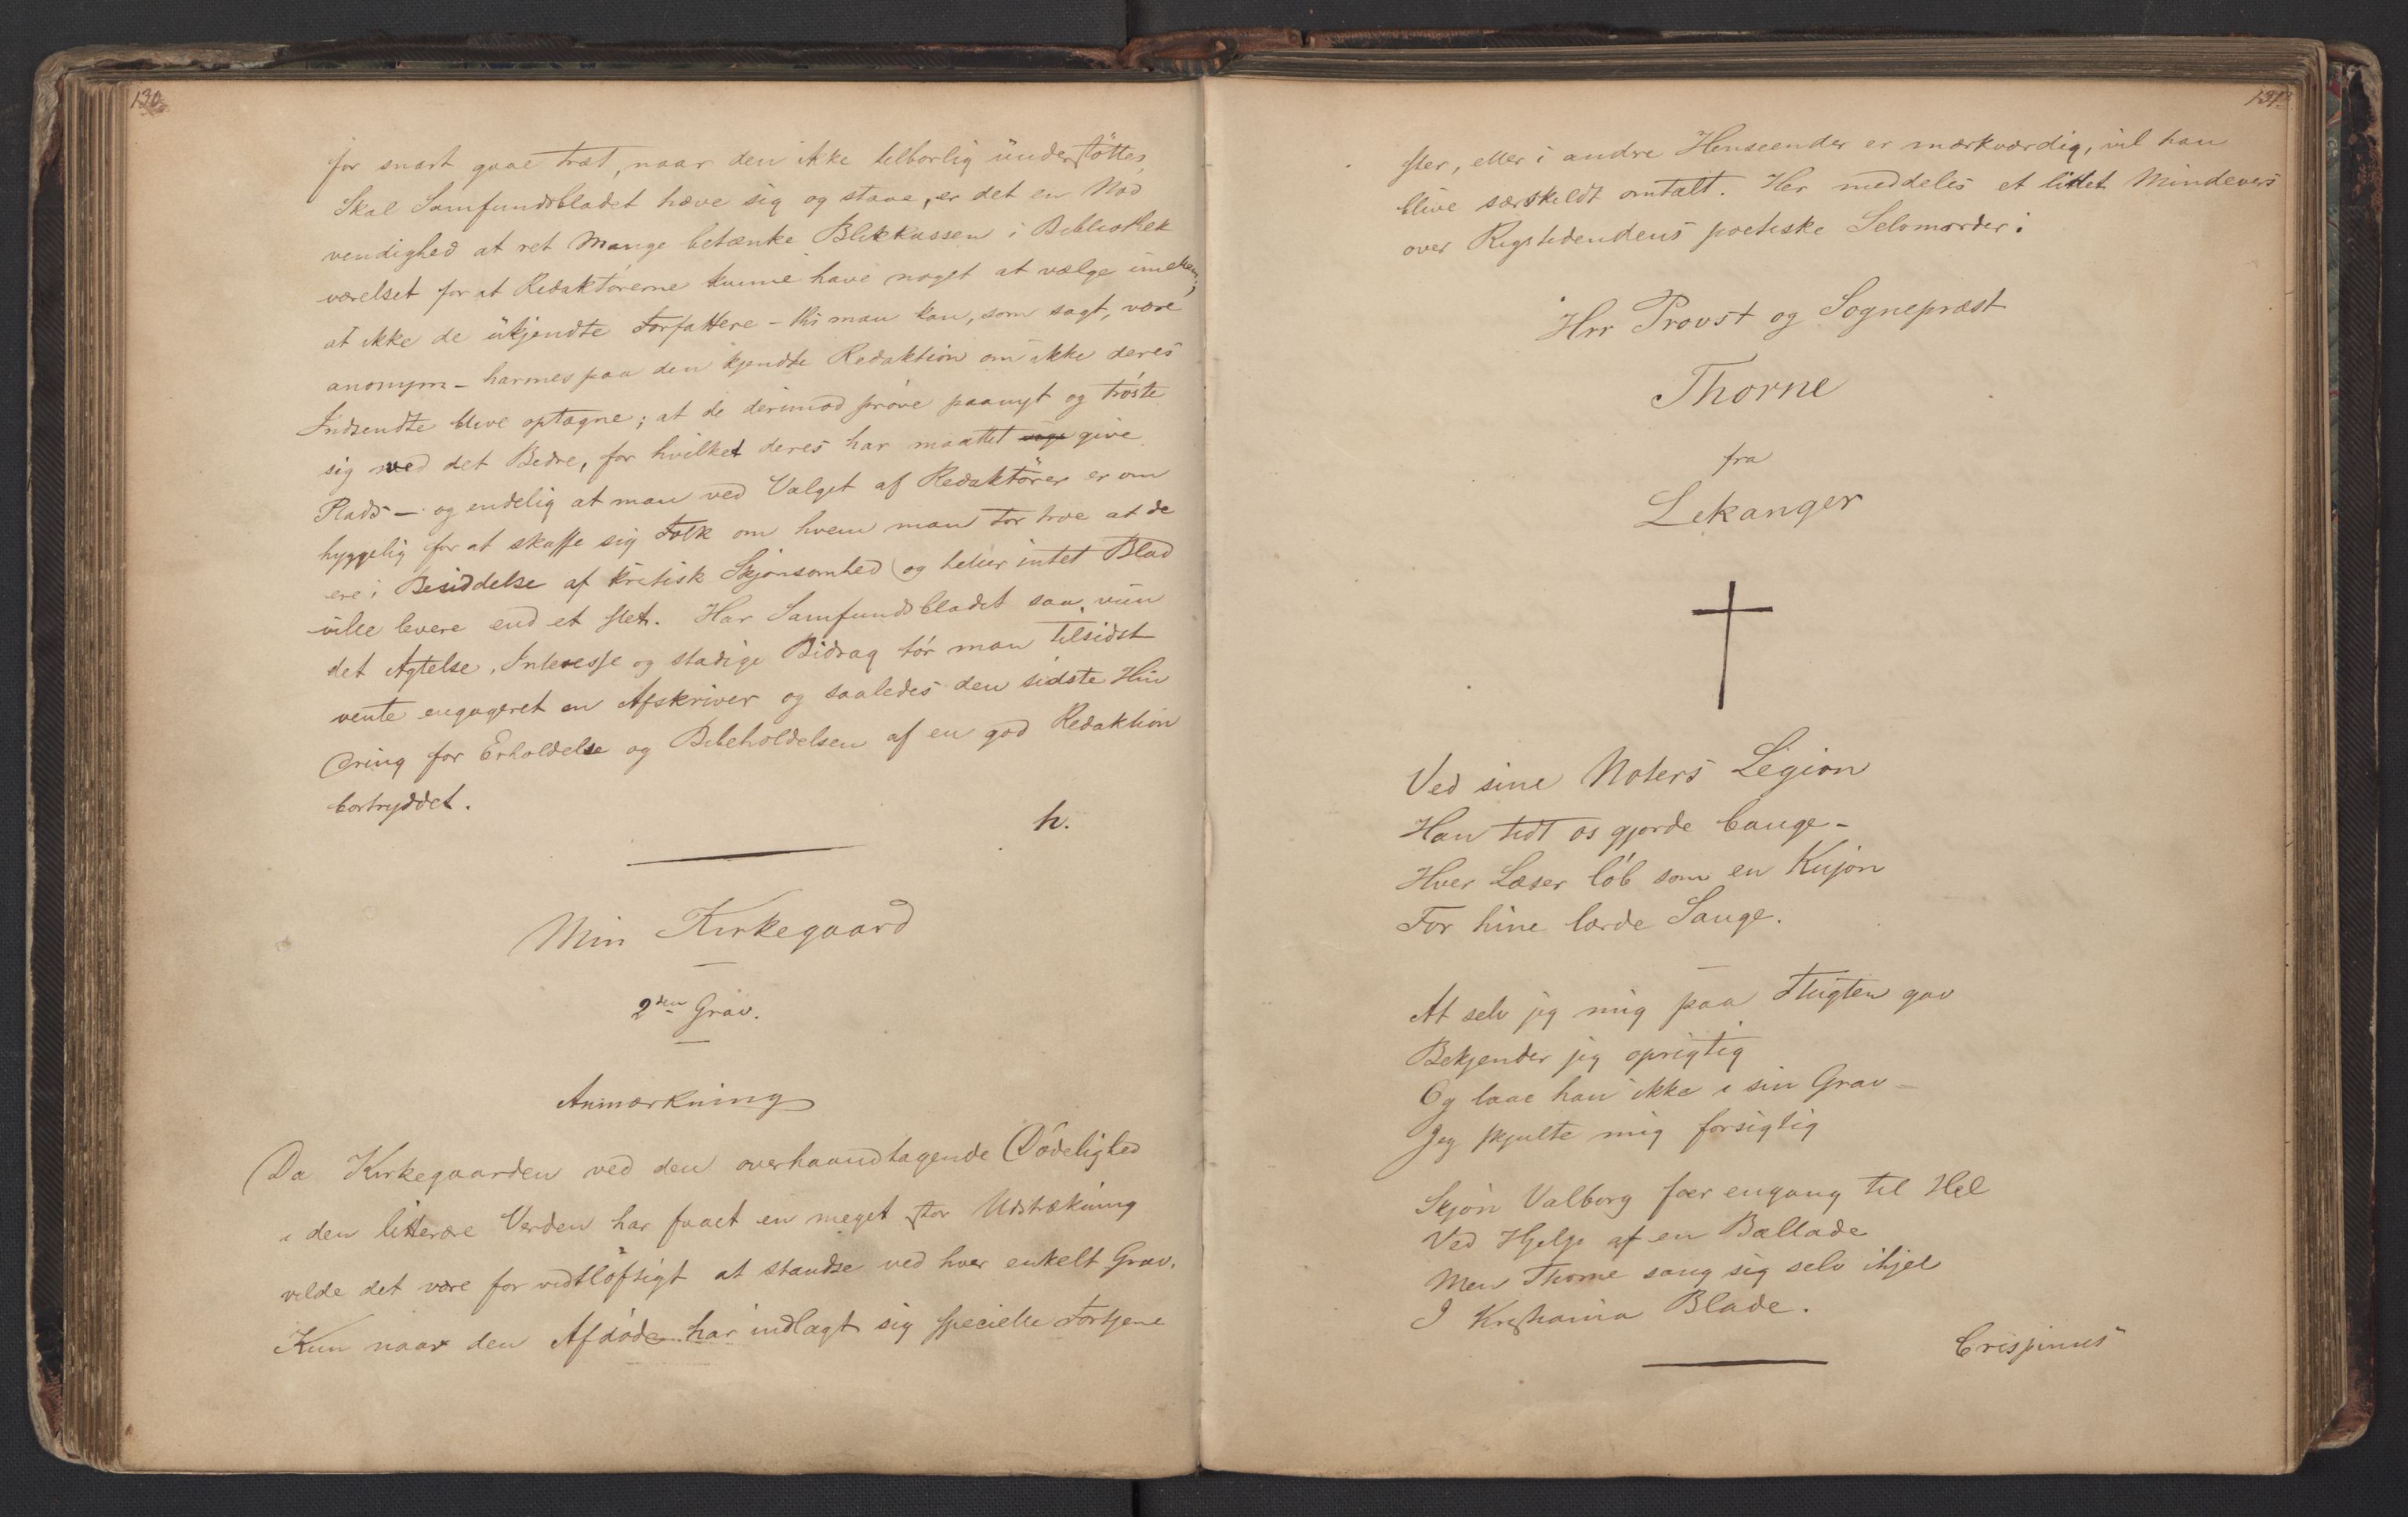 130.
for snart gaae træt, naar den ikke tilbørlig understöttes
Skal Samfundsbladet hæve sig og staae, er det en Nød
vendighed at ret Mange betænke Blikkassen i Bibliothek
værelset for at Redaktørerne kunne have noget at vælge imellem,
at ikke de ukjendte Forfattere - thi man kan, som sagt, være
anonym - harmes paa den kjendte Redaktion om ikke deres
Indsendte blive optagne; at de derimod prøve paanyt og trøste
sig ved det Bedre, for hvilket deres har maattet give
Plads - og endelig at man ved Valget af Redaktörer er om
hyggelig for at skaffe sig Folk om hvem man tør troe at de
ere i Besiddelse af kritisk Skjønsomhed og heller intet Blad
ville levere end et slet. Har Samfundsbladet saa vun
det Agtelse, Interesse og stadige Bidrag tør man tilsidst
vente engageret en Afskriver og saaledes den sidste Hin
dring for Erholdelse og Bibeholdelsen af en god Redaktion
bortryddet.
h.
Min Kirkegaard
2den Grav.
Anmærkning
Da Kirkegaarden ved den overhaandtagende Dødelighed
i den litterære Verden har faaet en meget stor Udstrækning
vilde det være for vidtløftigt at standse ved hver enkelt Grav.
Kun naar den Afdøde har indlagt sig specielle Fortjene
131.
ster, eller i andre Henseender er mærkværdig, vil han
blive særskildt omtalt. Her meddeles et lidet Mindevers
over Rigstidendens poetiske Selvmorder:
Hrr Provst og Sognepræst
Thorne
fra
Lekanger
Ved sine Noters Legion
Han tidt os gjorde bange -
Hver Læser løb som en Kujon
For hine lærde Sange.
At selv jeg mig paa Flugten gav
Bekjender jeg oprigtig
Og laae han ikke i sin Grav -
Jeg skjulte mig forsigtig
Skjøn Valborg foer engang til Hel
Ved Hjelp af en Ballade
Men Thorne sang sig selv ihjel
I Kristiania Blade.
Crispinus